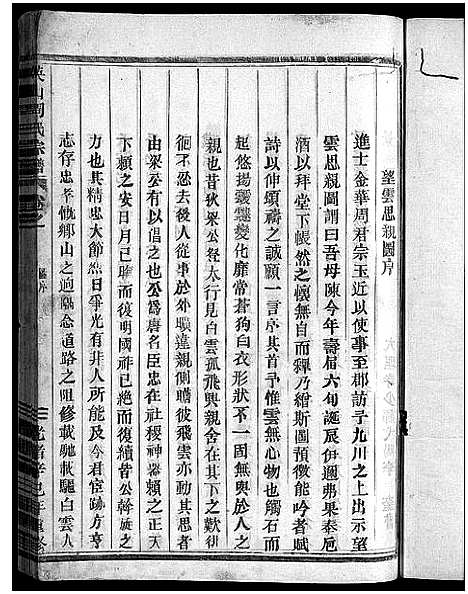 望雲思親圖序
進士金華周君宗玉近以使事至郡訪予九川之上出示望
雲思親圖謂曰吾母陳今年壽屆六旬誕辰伊邇弗果奉卮
酒以拜堂下悵然之懷無自而釋乃繪斯圖預徵能吟者賦
詩以伸頌禱之誠願一言序其首予惟雲無心物也觸石而
起悠揚靉靆變化靡常蒼狗白衣形狀不一固無與於人之
親也昔狄梁公登太行見白雲孤飛興親舍在其下之歎徘
徊不忍去後人從事於外曠違親側瞻彼飛雲亦動其思者
由梁公有以倡之也公為唐名臣忠在社稷神器賴之正天
下賴之安日月已晦而復明國祚已絶而復續昔公斡旋之
力也其精忠大節烈日爭光有非人所能及今君宦跡方亨
志存忠孝慨鄉山之迥隔念道路之阻修載馳載驅白雲人
英山周氏宗譜 卷之一
圖序
光緒辛巳年重修